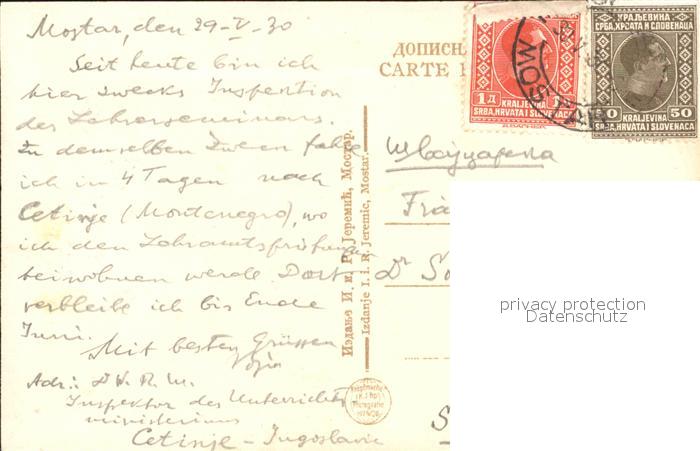 Mostar, den 29-V-30
Seit heute bin ich
hier zwecks Inspektion
des Lehrerseminars.
Zu demselben Zwecn fahre
ich in 4 Tagen nach
Cetinje (Montenegro), wo
ich den Lehramtsprüfungen
beiwohnen werde. Dort
verbleibe ich bis Ende
Juni.
Mit besten Grüssen
Adr.: Dr W. R. M.
Inspektor des Unterrichts
ministeriums
Cetinje - Jugoslavie
ДОПИСН
CARTE
Издање И. и. Р. Јеремић, Мостар.
Izdanje I. i. R. Jeremic, Mostar.
1 Д
KRALJEVINA
SRBA, HRVATA I SLOVENACA
КРАЉЕВИНА
СРБА, ХРВАТА И СЛОВЕНАЦА
50
KRALJEVINA
SRBA, HRVATA I SLOVENACA
MOSTAR
Швајцарска
Frä
Dr So
S
privacy protection
Datenschutz